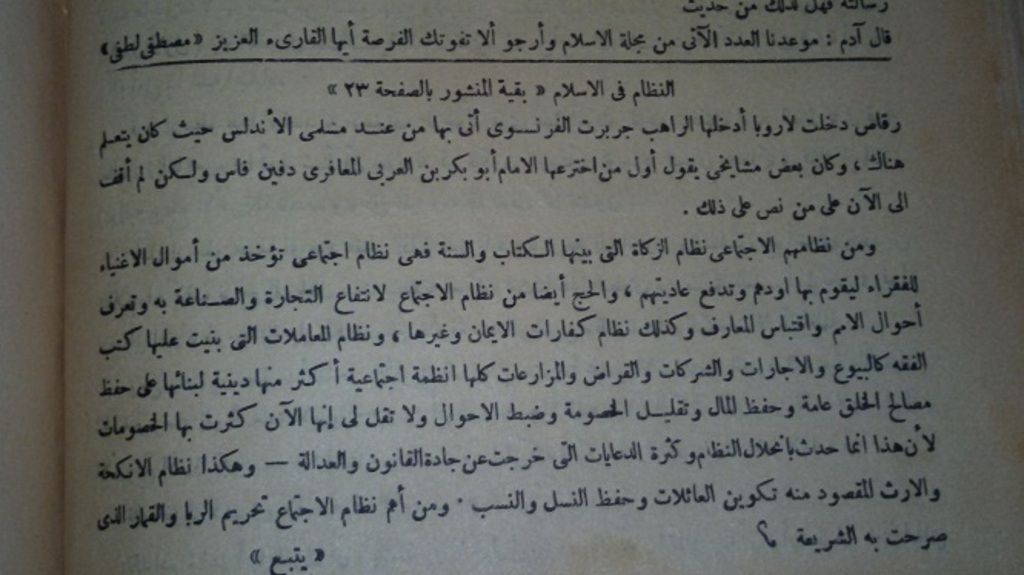 رسالته فهل لذلك من حديث
قال آدم : موعدنا العدد الآتى من مجلة الاسلام وأرجو ألا تفوتك الفرصة أيها القارىء العزيز «مصطفى لطفى»
النظام فى الاسلام « بقية المنشور بالصفحة ٢٣ »
رقاص دخلت لاروبا أدخلها الراهب جربرت الفرنسوى أتى بها من عند مسلمى الأندلس حيث كان يتعلم
هناك ، وكان بعض مشايخى يقول أول من اخترعها الامام أبو بكر بن العربى المعافرى دفين فاس ولكن لم أقف
الى الآن على من نص على ذلك .
ومن نظامهم الاجتماعى نظام الزكاة التى بينها الكتاب والسنة فهى نظام اجتماعى تؤخذ من أموال الاغنياء
للفقراء ليقوم بها اودهم وتدفع عاديتهم ، والحج أيضا من نظام الاجتماع لانتفاع التجارة والصناعة به وتعرف
أحوال الامم واقتباس المعارف وكذلك نظام كفارات الايمان وغيرها ، ونظام المعاملات التى بنيت عليها كتب
الفقه كالبيوع والاجارات والشركات والقراض والمزارعات كلها انظمة اجتماعية أكثر منها دينية لبنائها على حفظ
مصالح الخلق عامة وحفظ المال وتقليل الخصومة وضبط الاحوال ولا تقل لى إنها الآن كثرت بها الخصومات
لأن هذا انما حدث بانحلال النظام وكثرة الدعايات التى خرجت عن جادة القانون والعدالة — وهكذا نظام الانكحة
والارث المقصود منه تكوين العائلات وحفظ النسل والنسب . ومن أهم نظام الاجتماع تحريم الربا والقمار الذى
صرحت به الشريعة
« يتبع »